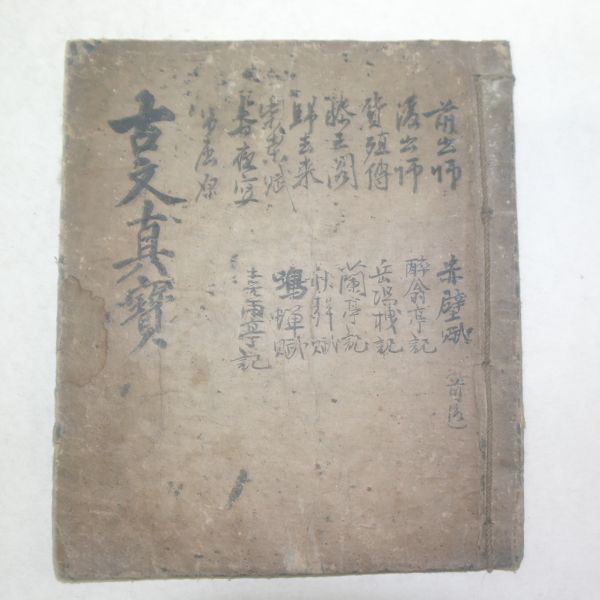 前出師
後出師
貨殖傳
滕王閣
歸去來
春夜宴
弔屈原
赤壁賦 前後
醉翁亭記
岳陽楼記
蘭亭記
秋聲賦
鳴蟬賦
喜雨亭記
古文真寶